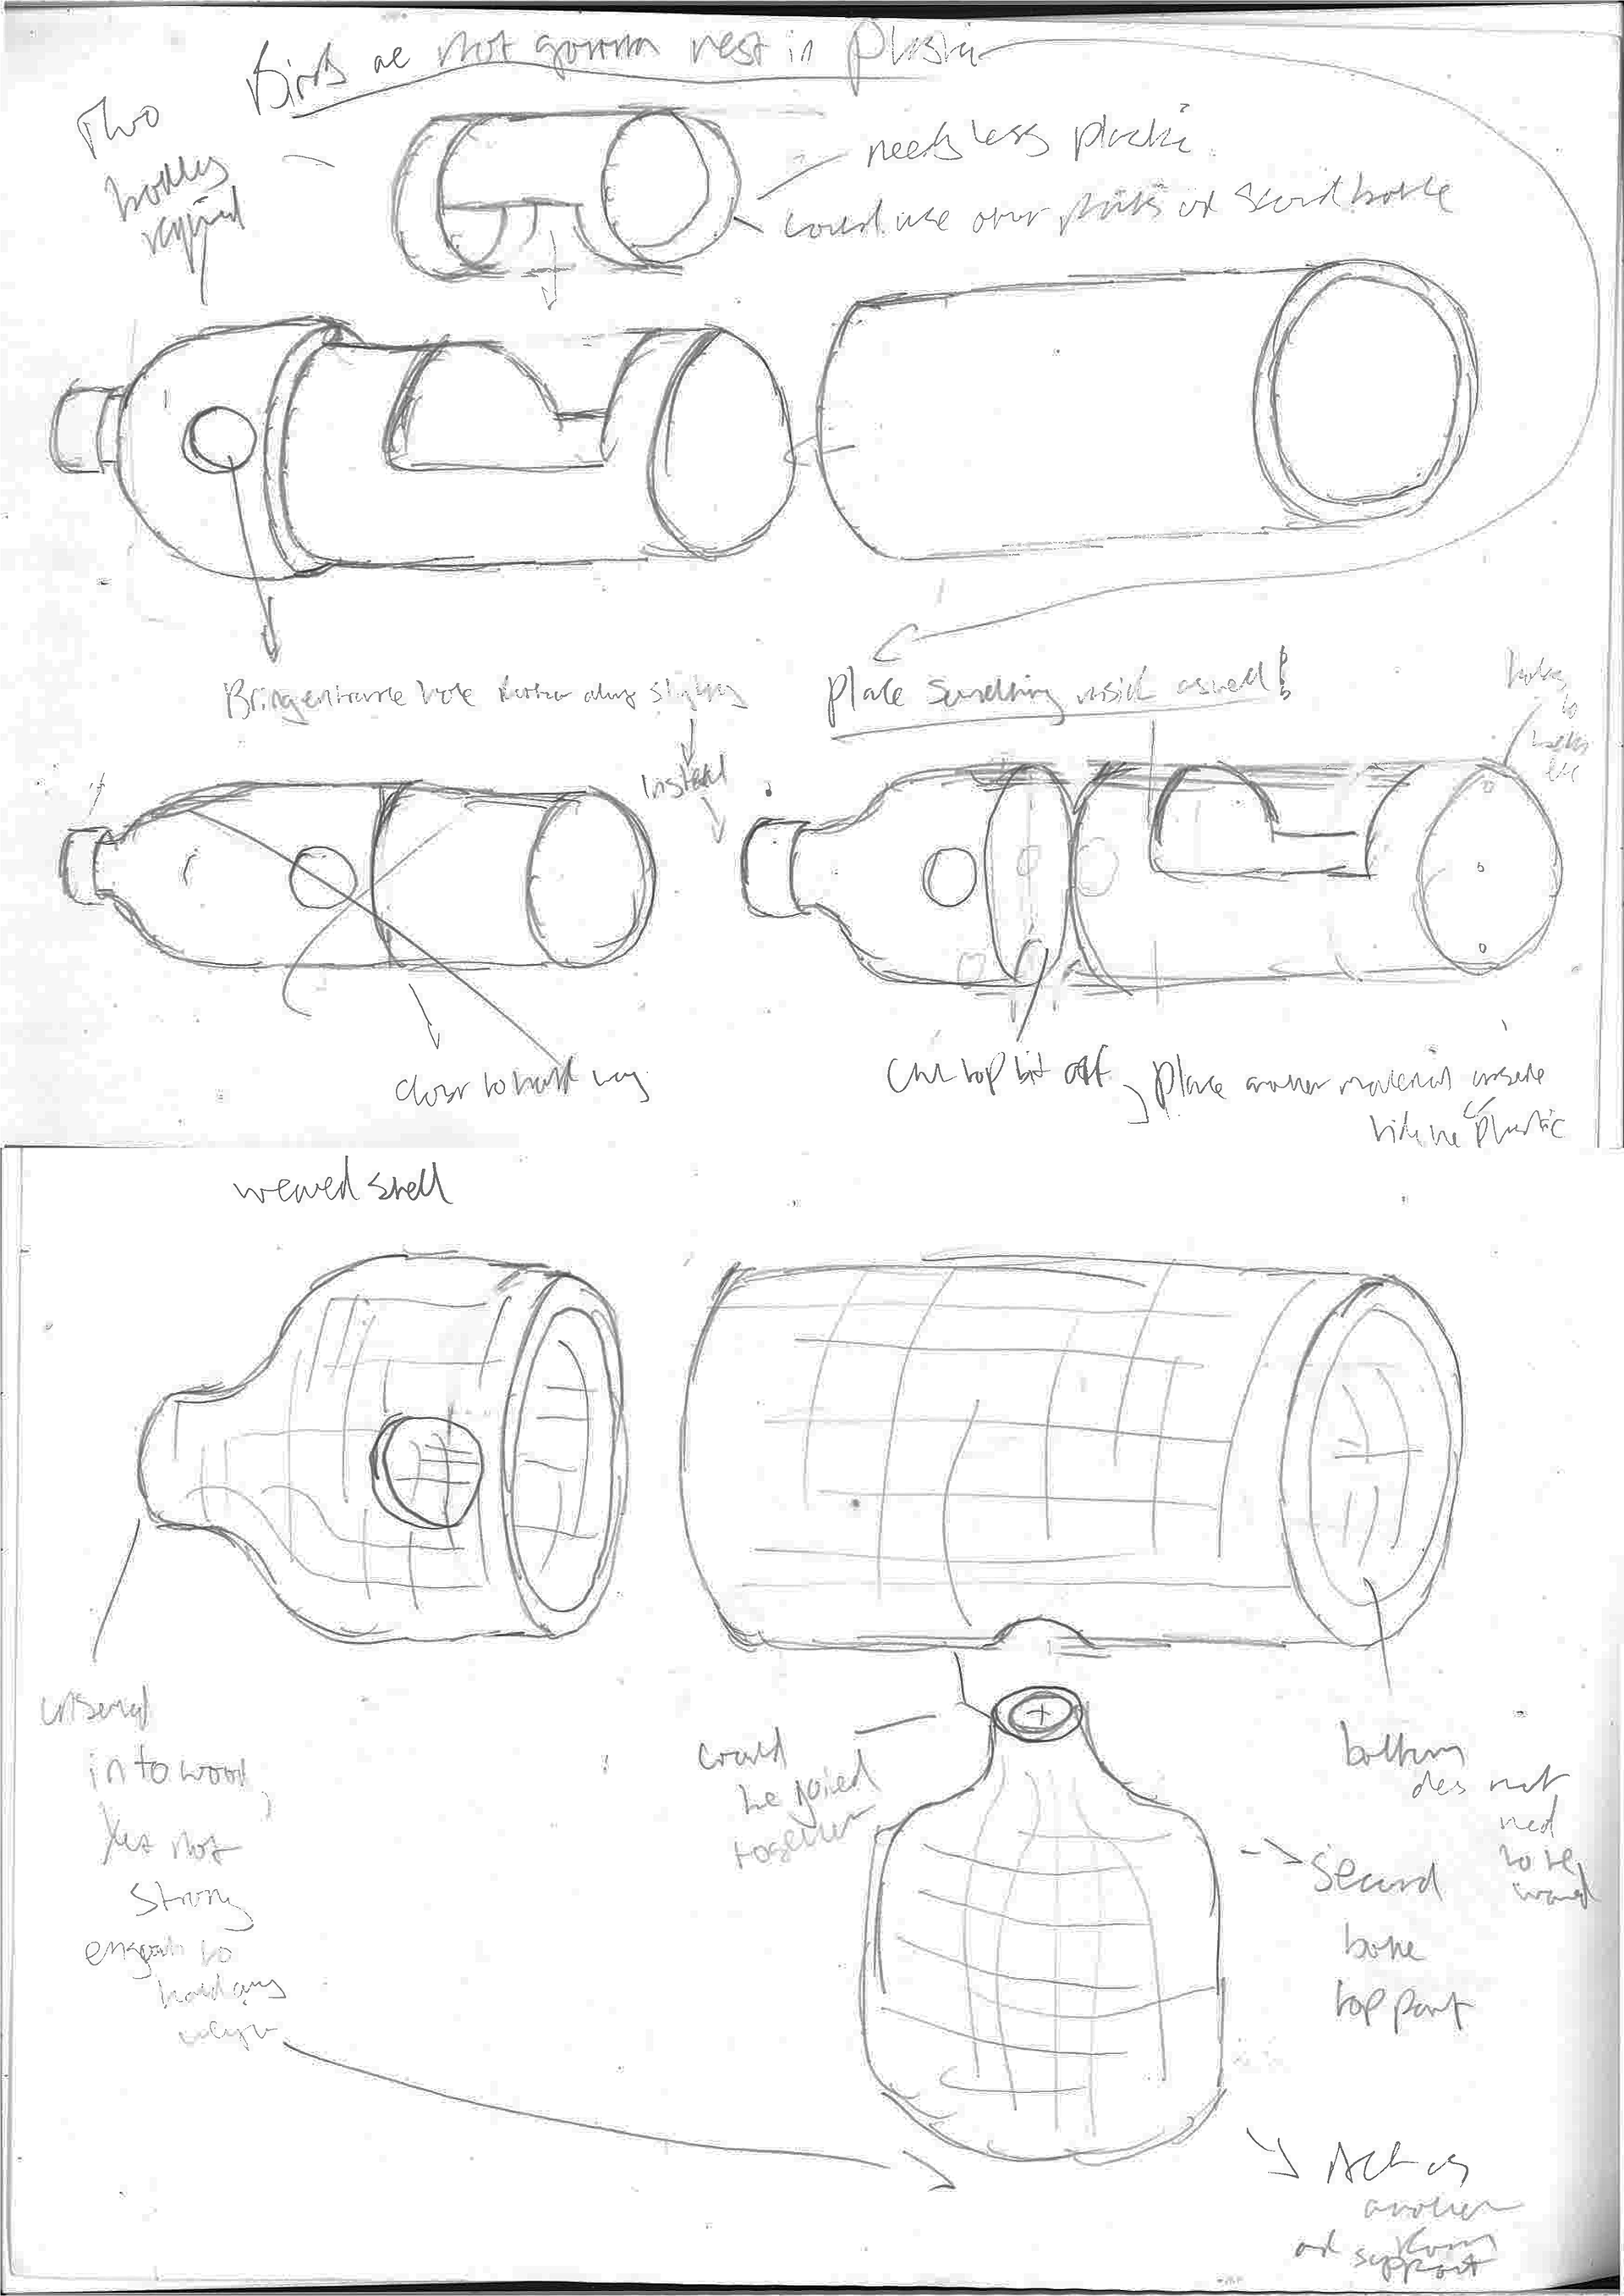 Birds are not gonna rest in plastic
Two
bottles
required
needs less plastic
could use other parts of second bottle
Bring entrance hole further along slightly
instead
Place something inside aswell!
holes
to
closer to half way
Cut top bit off
place another material inside
hide the plastic
weaved shell
insered
into wood,
Yet not
strong
enough to
hold any
could
be joined
together
bottom
does not
need
to be
second
bottle
top part
Act as
another
room
and support